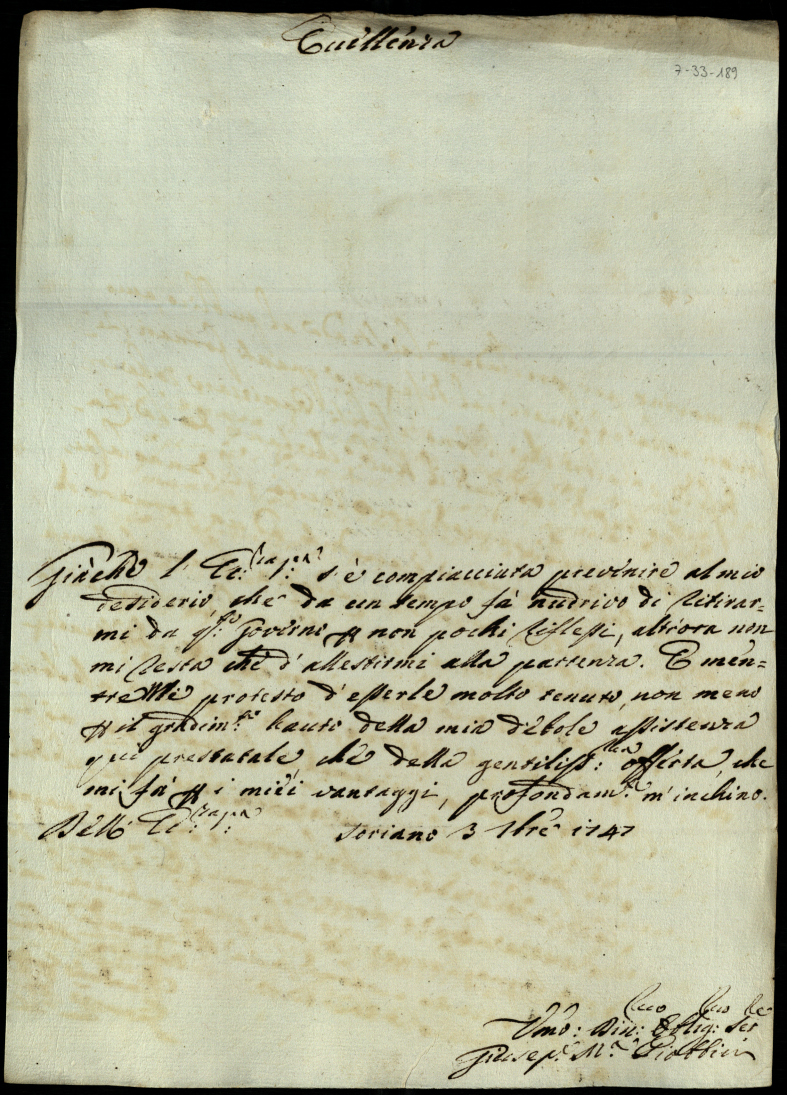 Eccellenza
7-33-189
Giàche l' Ec:za V:ra s'è compiacciuta prevenire al mio
desiderio, che da un tempo fà nudrivo di ritirar=
mi da q.to Governo p non pochi riflessi, altr'ora non
mi resta che d'allestirmi alla partenza. E men=
tre Mi protesto d'esserle molto tenuto, non meno
p il gradim.to hauto della mia debole assistenza
qui prestatale che della gentiliss:ma offerta, che
mi fà p i miei vantaggi, profondam.te m'inchino.
Dell' Ec:za V:ra Soriano 3 1747
Umo: Div: Oblig: Ser
Giusep.e M.a